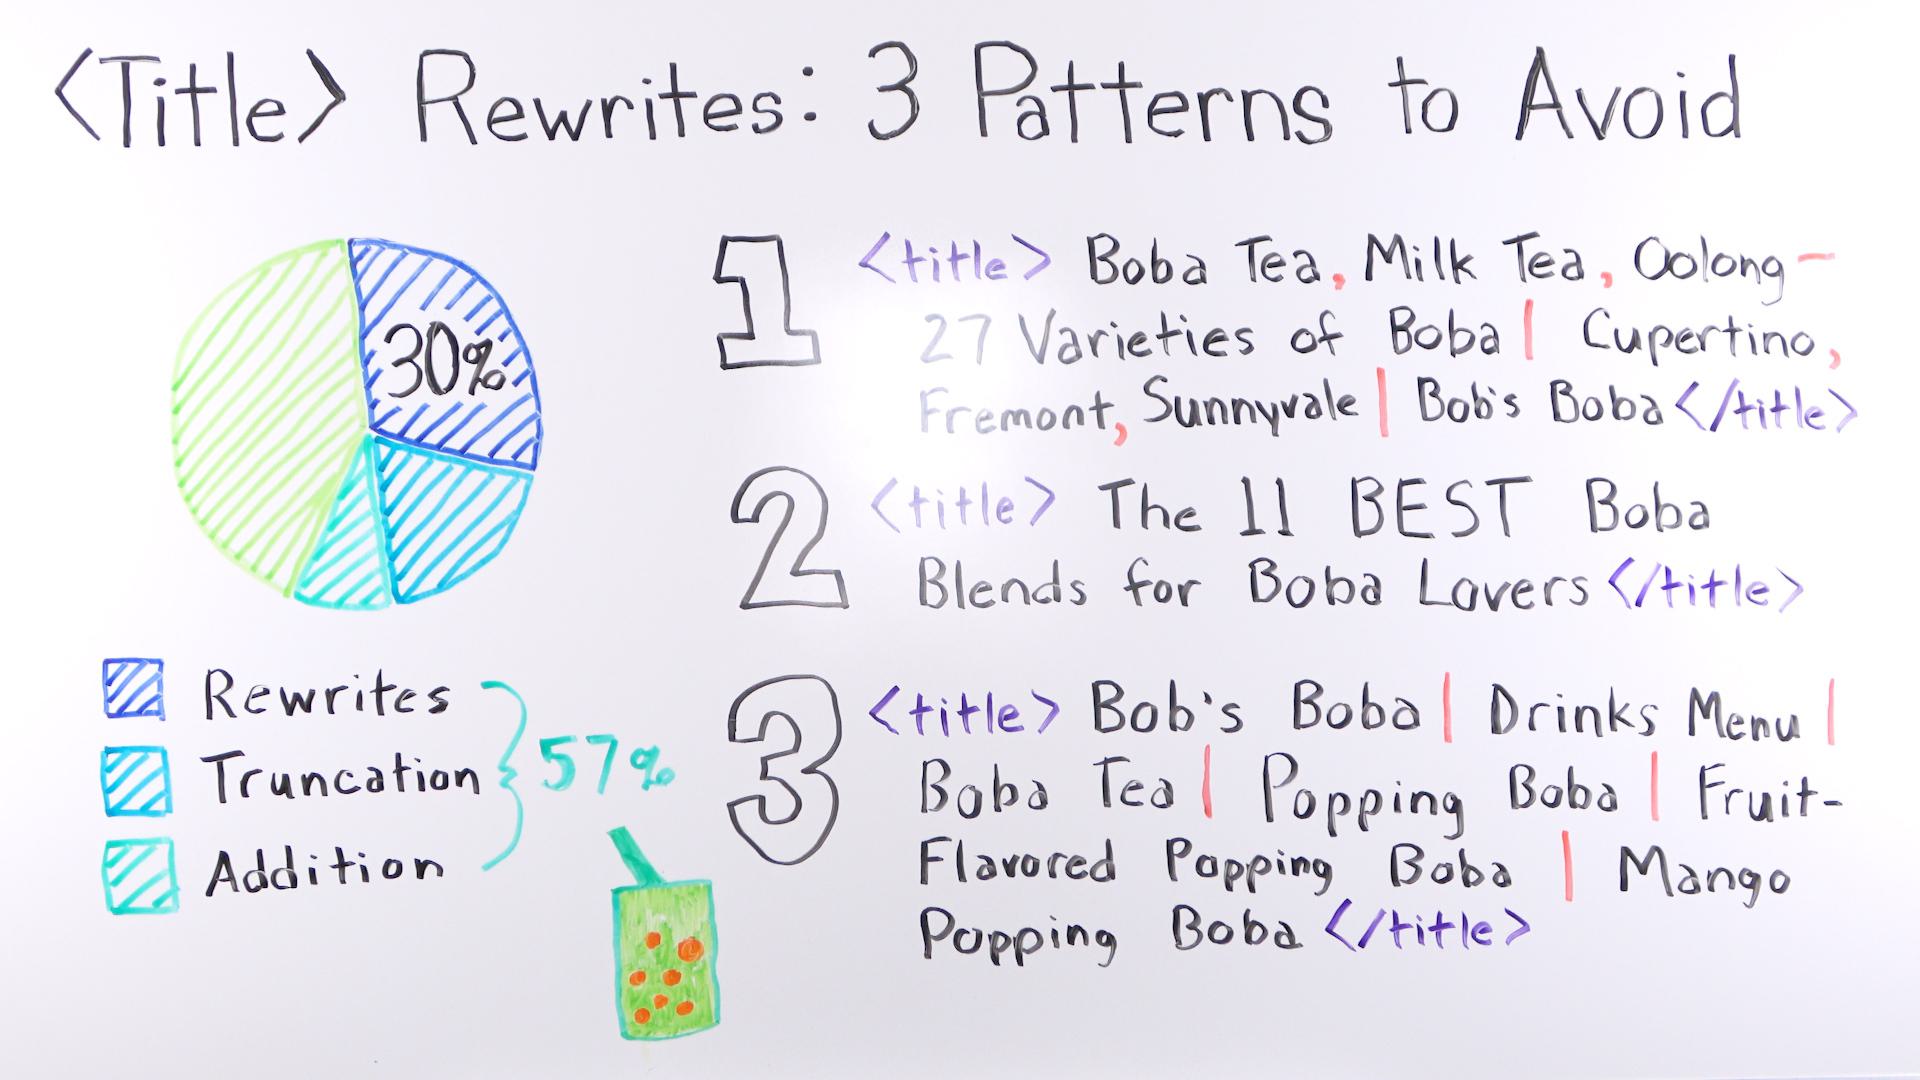 <Title> Rewrites: 3 Patterns to Avoid
30%
Rewrites
Truncation
Addition
57%
1
<title> Boba Tea, Milk Tea, Oolong -
27 Varieties of Boba | Cupertino,
Fremont, Sunnyvale | Bob's Boba </title>
2
<title> The 11 BEST Boba
Blends for Boba Lovers </title>
3
<title> Bob's Boba | Drinks Menu |
Boba Tea | Popping Boba | Fruit-
Flavored Popping Boba | Mango
Popping Boba </title>